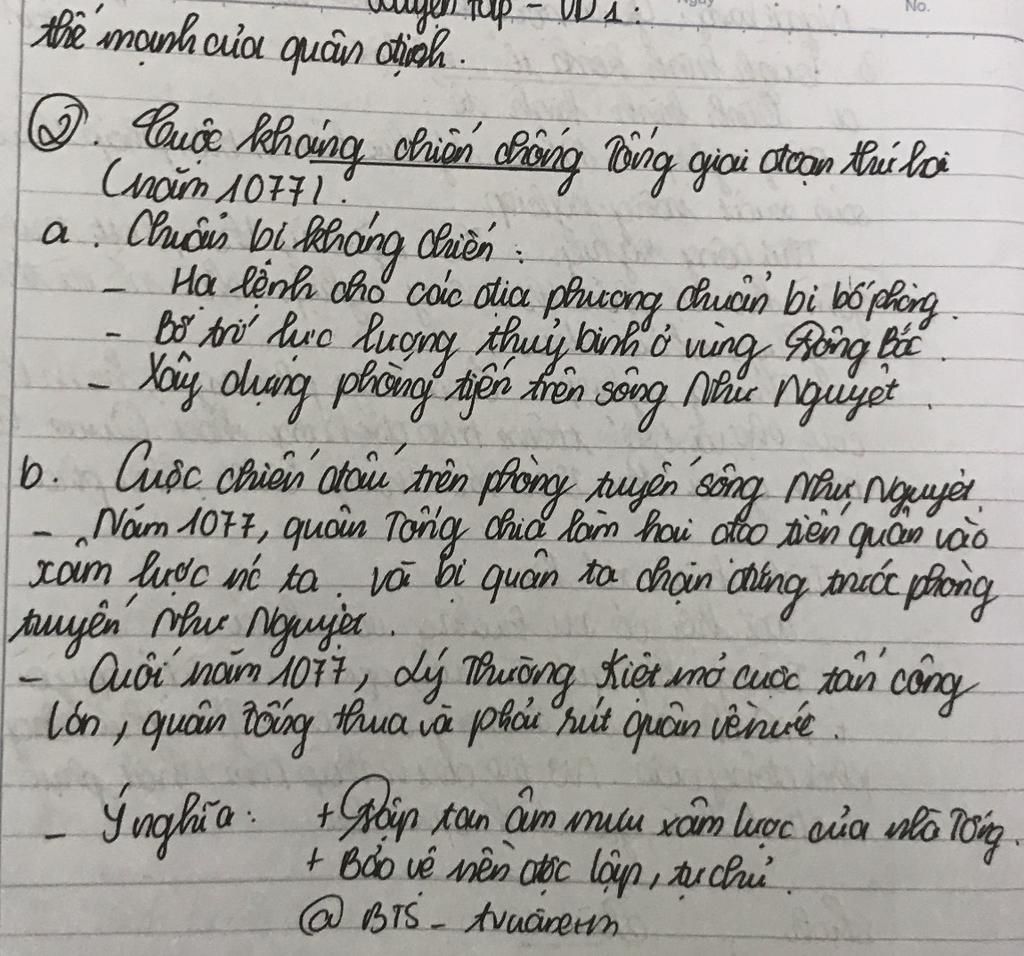 No.
thế mạnh của quân địch.
②. Cuộc kháng chiến chống Tống giai đoạn thứ hai
(năm 1077).
a. Chuẩn bị kháng chiến:
- Hạ lệnh cho các địa phương chuẩn bị bố phòng.
- Bố trí lực lượng thuỷ binh ở vùng Đông Bắc.
- Xây dựng phòng tyến trên sông Như Nguyệt.
b. Cuộc chiến đấu trên phòng tuyến sông Như Nguyệt
- Năm 1077, quân Tống chia làm hai đạo tiến quân vào
xâm lược nc ta. và bị quân ta chặn đứng trước phòng
tuyến Như Nguyệt.
- Cuối năm 1077, Lý Thường Kiệt mở cuộc tấn công
lớn, quân Tống thua và phải rút quân về nước.
- Ý nghĩa: + Đập tan âm mưu xâm lược của nhà Tống.
+ Bảo vệ nền độc lập, tự chủ.
@ BTS -